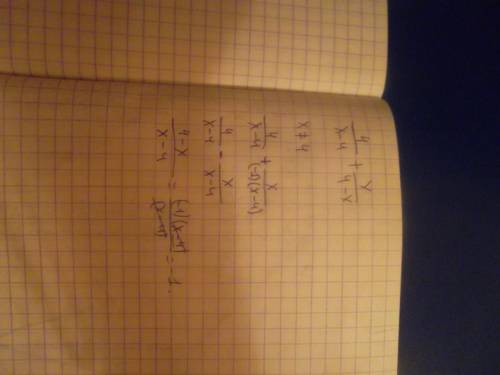 4/(x-4) + x/(4-x)
x ≠ 4
4/(x-4) + x/((-1)(x-4))
4/(x-4) - x/(x-4)
(4-x)/(x-4) = ((-1)(x-4))/(x-4) = -1.